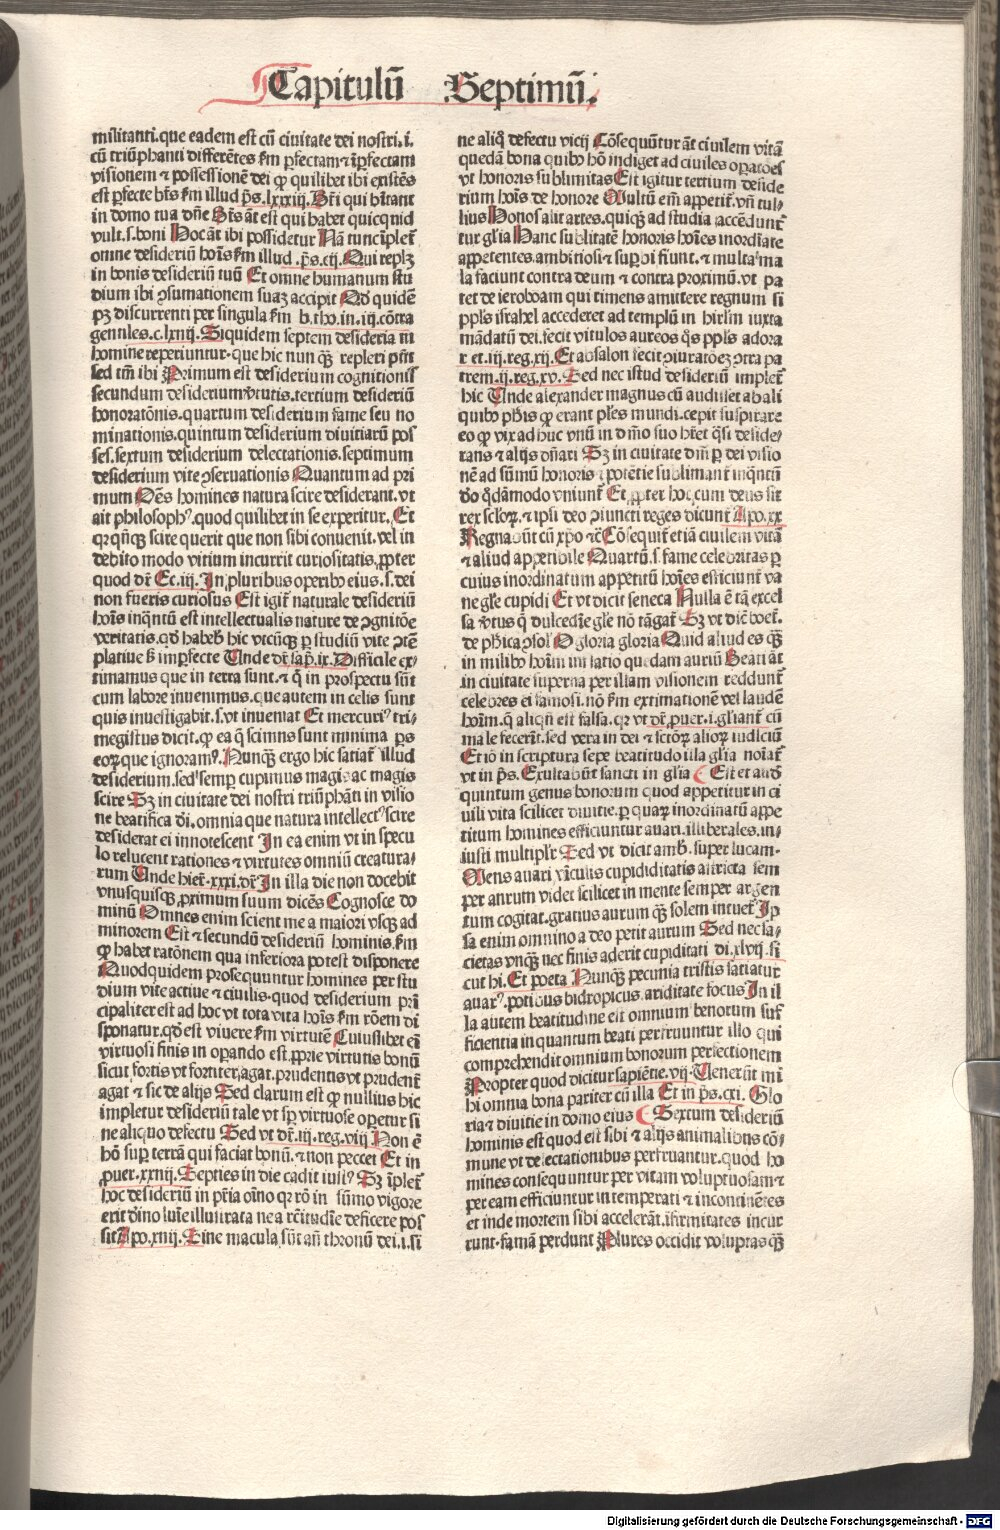 Capitulū Septimū.
militanti.que eadem est cū ciuitate dei nostri.i.
cū triūphanti differētes fm ꝑfectam ⁊ īꝑfectam
visionem ⁊ possessionē dei qꝛ quilibet ibi existēs
est ꝑfecte bt̄s fm illud ps.lxxxiij. Bt̄i qui hītant
in domo tua dn̄e Bt̄s āt est qui habet quicquid
vult.s.boni Hoc āt ibi possidetur Nā tunc īplet̄
omne desideriū hoīs fm illud .ps.cij. Qui replꝫ
in bonis desideriū tuū Et omne humanum stu
dium ibi ꝯsumationem suaꝫ accipit Qd̄ quidē
pꝫ discurrenti per singula fm b.tho.in.iij.cōtra
gentiles.c.lxiij. Siquidem septem desideria in
homine reperiuntur.que hic nunqꝫ repleri pn̄t
sed tm̄ ibi Primum est desiderium cognitionis
secundum desiderium v̓tutis.tertium desideriū
honoratōnis.quartum desiderium fame seu no
minationis.quintum desiderium diuitiarū pos
ses.sextum desiderium delectationis.septimum
desiderium vite ꝯseruationis Quantum ad pri
mum Oēs homines natura scire desiderant.vt
ait philosophꝰ.quod quilibet in se experitur. Et
qꝛ qn̄qꝫ scite querit que non sibi conuenit.vel in
debito modo vitium incurrit curiositatis.ꝓpter
quod dr̄ Ec.iij. In pluribus operibꝰ eius.s.dei
non fueris curiosus Est igit̄ naturale desideriū
hoīs inqn̄tū est intellectualis nature de ꝯgnitōe
veritatis.qd̓ habeb̓ hic vtcūqꝫ ꝑ studiū vite ꝯtē
platiue ſ̓ imperfecte Unde dr̄ sap̄.ix. Difficile ex-
timamus que in terra sunt.⁊ q̄ in prospectu sūt
cum labore inuenimus.que autem in celis sunt
quis inuestigabit.s.vt inueniat Et mercuriꝰ tri-
megistus dicit.ꝙ ea q̄ scimus sunt minima ꝑs
eoꝝ que ignoramꝰ. Nunqꝫ ergo hic satiat̄ illud
desiderium.sed semꝑ cupimus magis ac magis
scire Sꝫ in ciuitate dei nostri triūphāti in visio
ne beatifica dei.omnia que natura intellectꝰ scire
desiderat ei innotescent In ea enim vt in specu
lo relucent rationes ⁊ virtutes omniū creatura-
rum Unde hier̄.xxxi.dr̄ In illa die non docebit
vnusquisqꝫ ꝓximum suum dicēs Cognosce do
minū Omnes enim scient me a maiori vsqꝫ ad
minorem Est ⁊ secundū desideriū hominis.fm
ꝙ habet ratōnem qua inferiora potest disponere
Quodquidem prosequuntur homines per stu
dium vite actiue ⁊ ciuilis.quod desiderium pri
cipaliter est ad hoc vt tota vita hoīs fm rōem di
sponatur.qd̓ est viuere fm virtutē Cuiuslibet eī
virtuosi finis in oꝑando est ꝓprie virtutis bonū
sicut fortis vt fortiter agat.prudentis vt prudent̄
agat ⁊ sic de alijs Sed clarum est ꝙ nullius hic
impletur desideriū tale vt sꝑ virtuose oꝑetur si
ne aliquo defectu Sed vt dr̄.iij.reg.viij Non ē
hō suꝑ terrā qui faciat bonū.⁊ non peccet Et in
ꝓuer.xxiiij. Septies in die cadit iustꝰ Sꝫ īplet̄
hoc desideriū in pr̄ia oīno qꝛ rō in summo vigore
erit diuino luīe illustrata ne a rc̄itudīe deficere pos
sit Apo.xiiij. Sine macula sūt añ thronū dei.i.si
ne aliq̄ defectu vicij Cōsequūtur āt ciuilem vitā
quedā bona quibꝰ hō indiget ad ciuiles oꝑatōes
vt honoris sublimitas Est igitur tertium deside
rium hoīs de honore Multū em̄ appetit̄.vn̄ tul-
lius Honos alit artes.quicqꝫ ad studia accēdunt̄
tur gl̓ia Hanc sublitatē honoris hoīes inordīate
appetentes.ambitiosi ⁊ suꝑbi fiunt.⁊ multa ma
la faciunt contra deum ⁊ contra proximū.vt pa
tet de ieroboam qui timens amittere regnum si
ppl̓s israhel accederet ad templū in hirl̓m iuxta
mādatū dei.fecit vitulos aureos qͦs ppl̓s adora
r et.iij.reg.xij. Et absalon fecit ꝯiuratōeꝫ ꝯtra pa
trem.ij.reg.xv. Sed nec istud desideriū implet̄
hic Unde alexander magnus cū audisset ab ali
quibꝰ ph̓is ꝙ erant pl̓es mundi.cepit suspirare
eo ꝙ vix adhuc vnū in dn̄io suo hr̄et qͣsi deside-
rans ⁊ alijs dn̄ari Sꝫ in ciuitate dn̄i ꝑ dei visio
nē ad sūmū honoris ⁊ potētie sublimant̄ inqn̄tū
deo qͦdāmodo vniunt̄ Et ꝓpter hoc cum deus sit
rex scl̓oꝝ.⁊ ipsi deo ꝯiuncti reges dicunt̄ Apo.xx
Regnabūt cū xp̄o ⁊c̄ Cōsequit̄ etiā ciuilem vitā
⁊ aliud appetibile Quartū.s.fame celebritas ꝑ
cuius inordinatum appetitū hoīes efficiunt̄ va
ne gl̓e cupidi Et vt dicit seneca Nulla ē tā excel
sa v̓tus q̄ dulcedīe gl̓e nō tāgat̄ Sꝫ vt dic̄ boet̄.
de ph̓ica ꝯsol̓ O gloria gloria Quid aliud es qꝫ
in milibꝰ hoīm inflatio quedam auriū Beati āt
in ciuitate superna per illam visionem reddunt̄
celebres ⁊ famosi.nō fm extimationē vel laudē
hoīm.q̄ aliqn̄ est falsa.qꝛ vt dr̄.ꝓuer.i.gl̓iant̄ cū
male fecerīt.sed vera in dei ⁊ sctōꝝ alioꝝ iudiciū
Et iō in scriptura sepe beatitudo illa gl̓ia noīat̄
vt in ps. Exultabūt sancti in gl̓ia ¶ Est et aliud
quintum genus bonorum quod appetitur in ci
uili vita scilicet diuitie.ꝑ quaꝝ inordinatū appe
titum homines efficiuntur auari.illiberales.in-
iusti multipl̓r Sed vt dicit amb̓.super lucam.
Mens auari vinculis cupiditatis astricta sem
per aurum videt scilicet in mente semper argen
tum cogitat.gratius aurum qꝫ solem intuet̄ Ip
sa enim omnino a deo petit aurum Sed nec sa-
cietas vnqꝫ nec finis aderit cupiditati di.xlvij.si
cut hi. Et poeta Nunqꝫ pecunia tristis satiatur
auarꝰ.potibus hidropicus.ariditate focus In il
la autem beatitudine est omnium bonorum suf
ficientia in quantum beati perfruuntur illo qui
comprehendit omnium bonorum perfectionem
Propter quod dicitur sapiētie.vij. Uenerūt mi
hi omnia bona pariter cū illa Et in ps.cxi. Glo
ria ⁊ diuitie in domo eius ¶ Sextum desideriū
hominis est quod est sibi ⁊ alijs animalibus cō-
mune vt delectationibus perfruantur.quod ho
mines consequuntur per vitam voluptuosam ⁊
per eam efficiuntur intemperati ⁊ incontinētes
et inde mortem sibi accelerāt.īfirmitates incur
runt.famā perdunt Plures occidit voluptas qꝫ
Digitalisierung gefördert durch die Deutsche Forschungsgemeinschaft - DFG